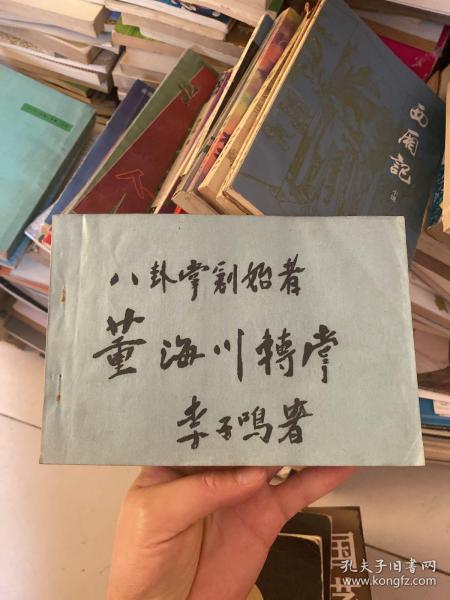 西厢記
八卦掌創始者
董海川轉掌
李子鳴署
國
孔夫子旧书网
www.kongfz.com